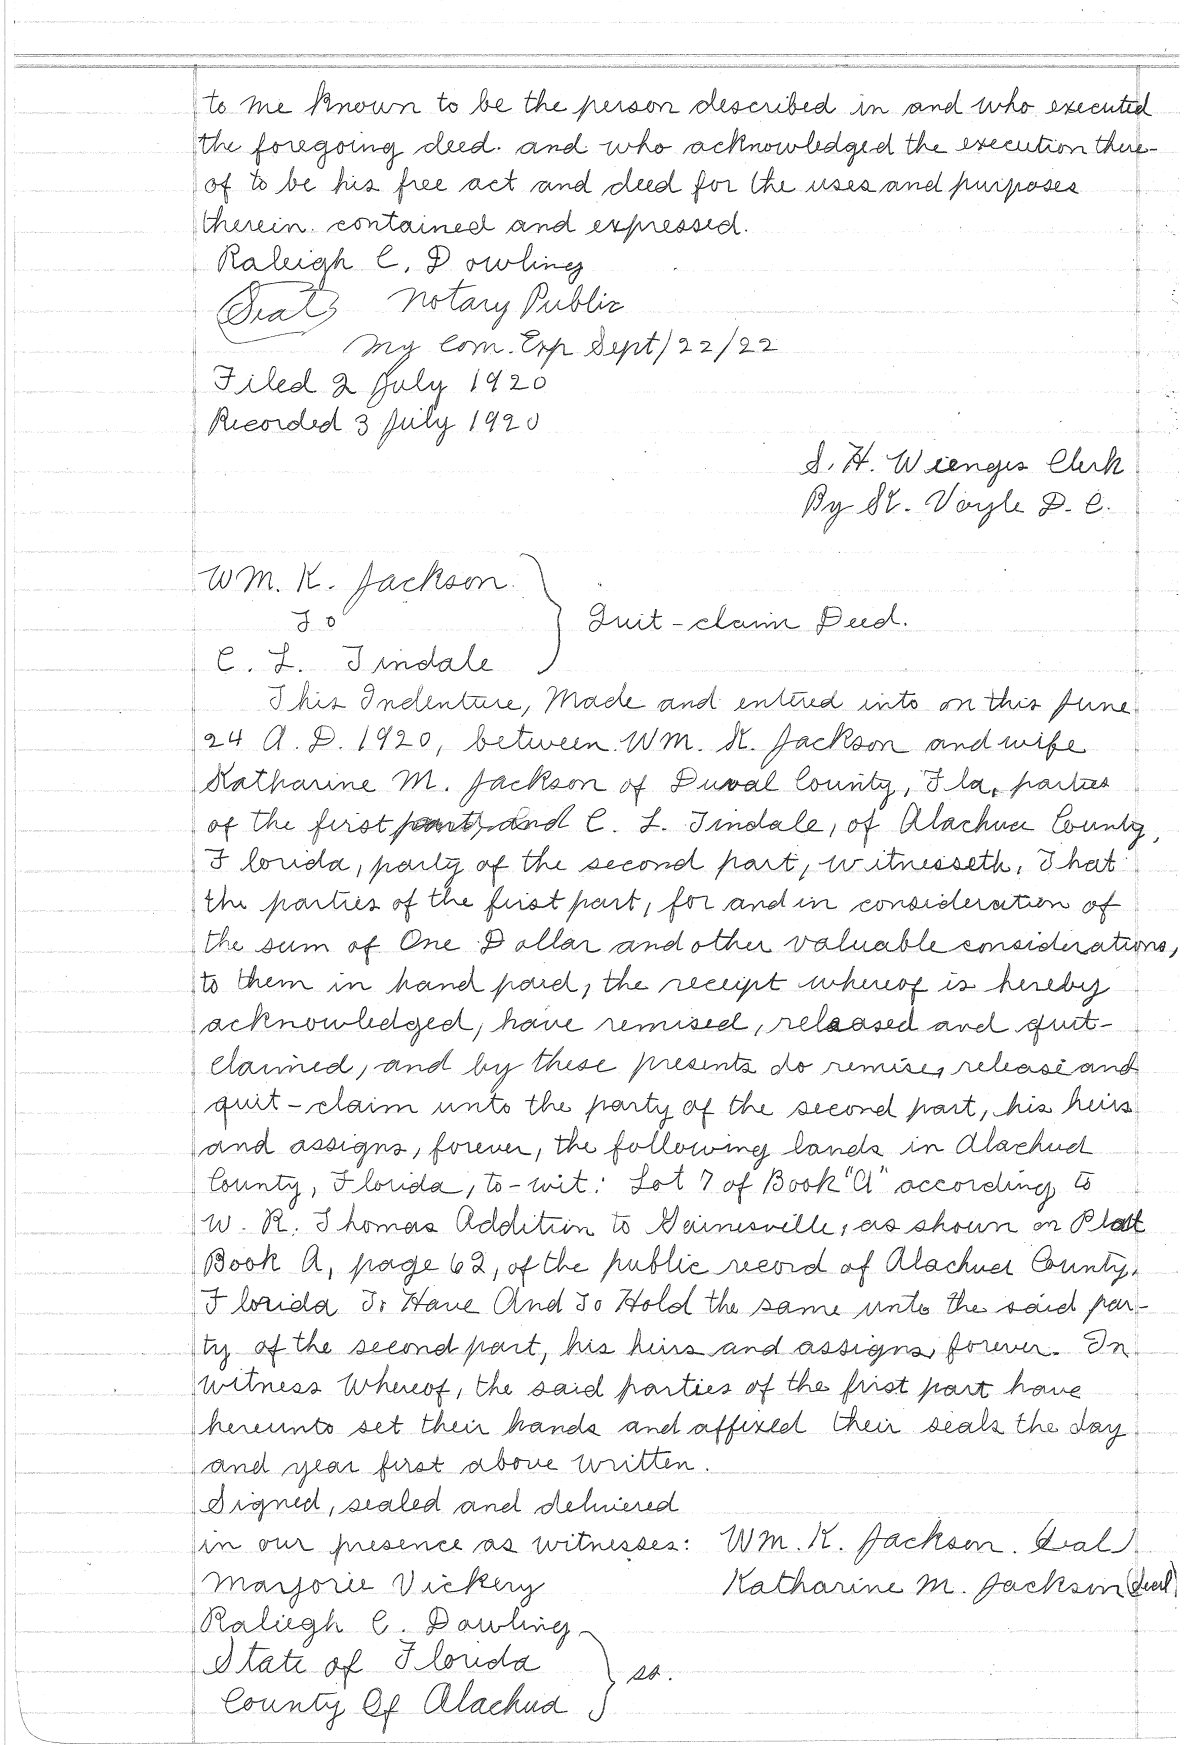 to me known to be the person described in and who executed
the foregoing deed. and who acknowledged the execution there-
of to be his free act and deed for the uses and purposes
therein contained and expressed.
Raleigh C. Dowling
(Seal) Notary Public
My Com. Exp Sept/22/22
Filed 2 July 1920
Recorded 3 July 1920
S. H. Wienges Clerk
By St. Voyle D. C.
WM. K. Jackson
To
Quit-claim Deed.
C. L. Tindale
This Indenture, Made and entered into on this June
24 A. D. 1920, between WM. K. Jackson and wife
Katharine M. Jackson of Duval County, Fla, parties
of the first part, and C. L. Tindale, of Alachua County,
Florida, party of the second part, witnesseth, That
the parties of the first part, for and in consideration of
the sum of One Dollar and other valuable considerations,
to them in hand paid, the receipt whereof is hereby
acknowledged, have remised, released and quit-
claimed, and by these presents do remise, release and
quit-claim unto the party of the second part, his heirs
and assigns, forever, the following lands in Alachua
County, Florida, to-wit: Lot 7 of Book "A" according to
W. R. Thomas Addition to Gainesville, as shown on Plat
Book A, page 62, of the public record of Alachua County,
Florida To Have And To Hold the same unto the said par-
ty of the second part, his heirs and assigns, forever. In
witness Whereof, the said parties of the first part have
hereunto set their hands and affixed their seals the day
and year first above written.
Signed, sealed and delivered
in our presence as witnesses: WM. K. Jackson. (Seal)
Marjorie Vickery Katharine M. Jackson (Seal)
Raliegh C. Dowling
State of Florida
ss.
County Of Alachua